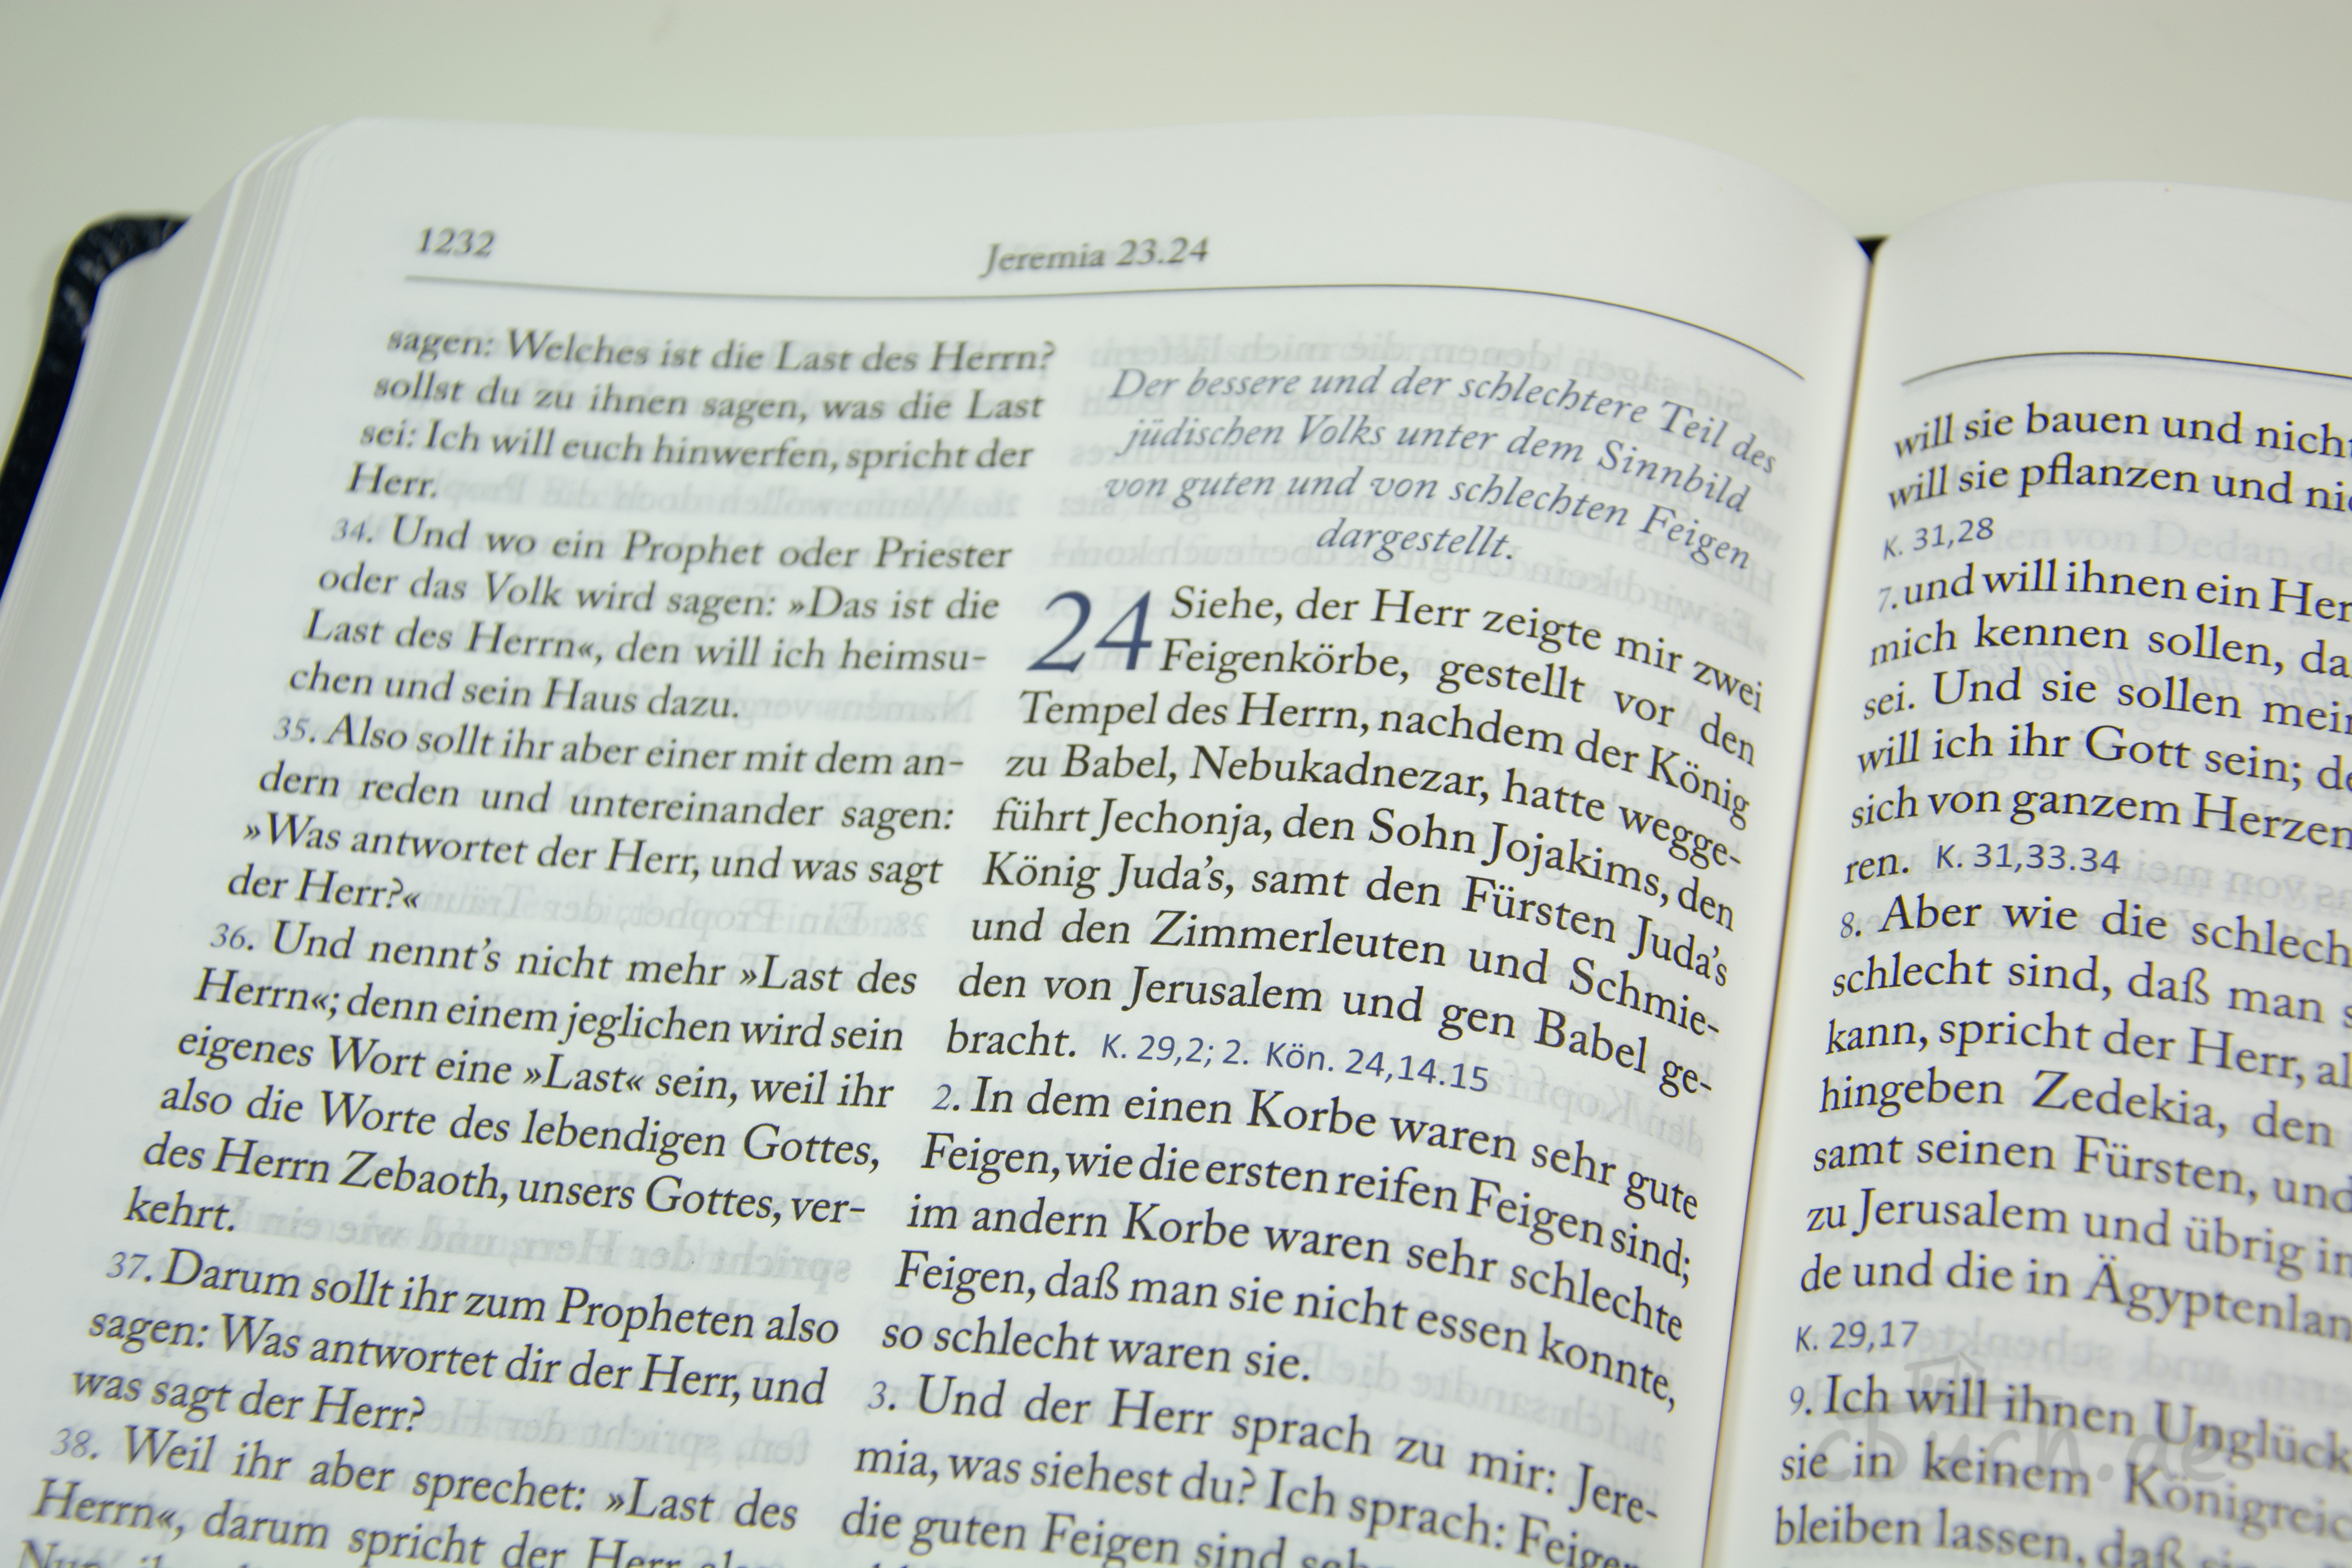 1232
Jeremia 23.24
sagen: Welches ist die Last des Herrn?
sollst du zu ihnen sagen, was die Last
sei: Ich will euch hinwerfen, spricht der
Herr.
34. Und wo ein Prophet oder Priester
oder das Volk wird sagen: »Das ist die
Last des Herrn«, den will ich heimsu-
chen und sein Haus dazu.
35. Also sollt ihr aber einer mit dem an-
dern reden und untereinander sagen:
»Was antwortet der Herr, und was sagt
der Herr?«
36. Und nennt's nicht mehr »Last des
Herrn«; denn einem jeglichen wird sein
eigenes Wort eine »Last« sein, weil ihr
also die Worte des lebendigen Gottes,
des Herrn Zebaoth, unsers Gottes, ver-
kehrt.
37. Darum sollt ihr zum Propheten also
sagen: Was antwortet dir der Herr, und
was sagt der Herr?
38. Weil ihr aber sprechet: »Last des
Herrn«, darum spricht der Herr also
Der bessere und der schlechtere Teil des
jüdischen Volks unter dem Sinnbild
von guten und von schlechten Feigen
dargestellt.
24 Siehe, der Herr zeigte mir zwei
Feigenkörbe, gestellt vor den
Tempel des Herrn, nachdem der König
zu Babel, Nebukadnezar, hatte wegge-
führt Jechonja, den Sohn Jojakims, den
König Juda's, samt den Fürsten Juda's
und den Zimmerleuten und Schmie-
den von Jerusalem und gen Babel ge-
bracht. K. 29,2; 2. Kön. 24,14.15
2. In dem einen Korbe waren sehr gute
Feigen, wie die ersten reifen Feigen sind;
im andern Korbe waren sehr schlechte
Feigen, daß man sie nicht essen konnte,
so schlecht waren sie.
3. Und der Herr sprach zu mir: Jere-
mia, was siehest du? Ich sprach: Feigen
die guten Feigen sind sehr
will sie bauen und nicht
will sie pflanzen und
K. 31,28
7. und will ihnen ein
mich kennen sollen,
sei. Und sie sollen
will ich ihr Gott sein;
sich von ganzem Herzen
ren. K. 31,33.34
8. Aber wie die
schlecht sind, daß man
kann, spricht der Herr,
hingeben Zedekia, den
samt seinen Fürsten, und
zu Jerusalem und übrig
de und die in
K. 29,17
9. Ich will ihnen Unglück
sie in keinem
bleiben lassen, daß
cbuch.de